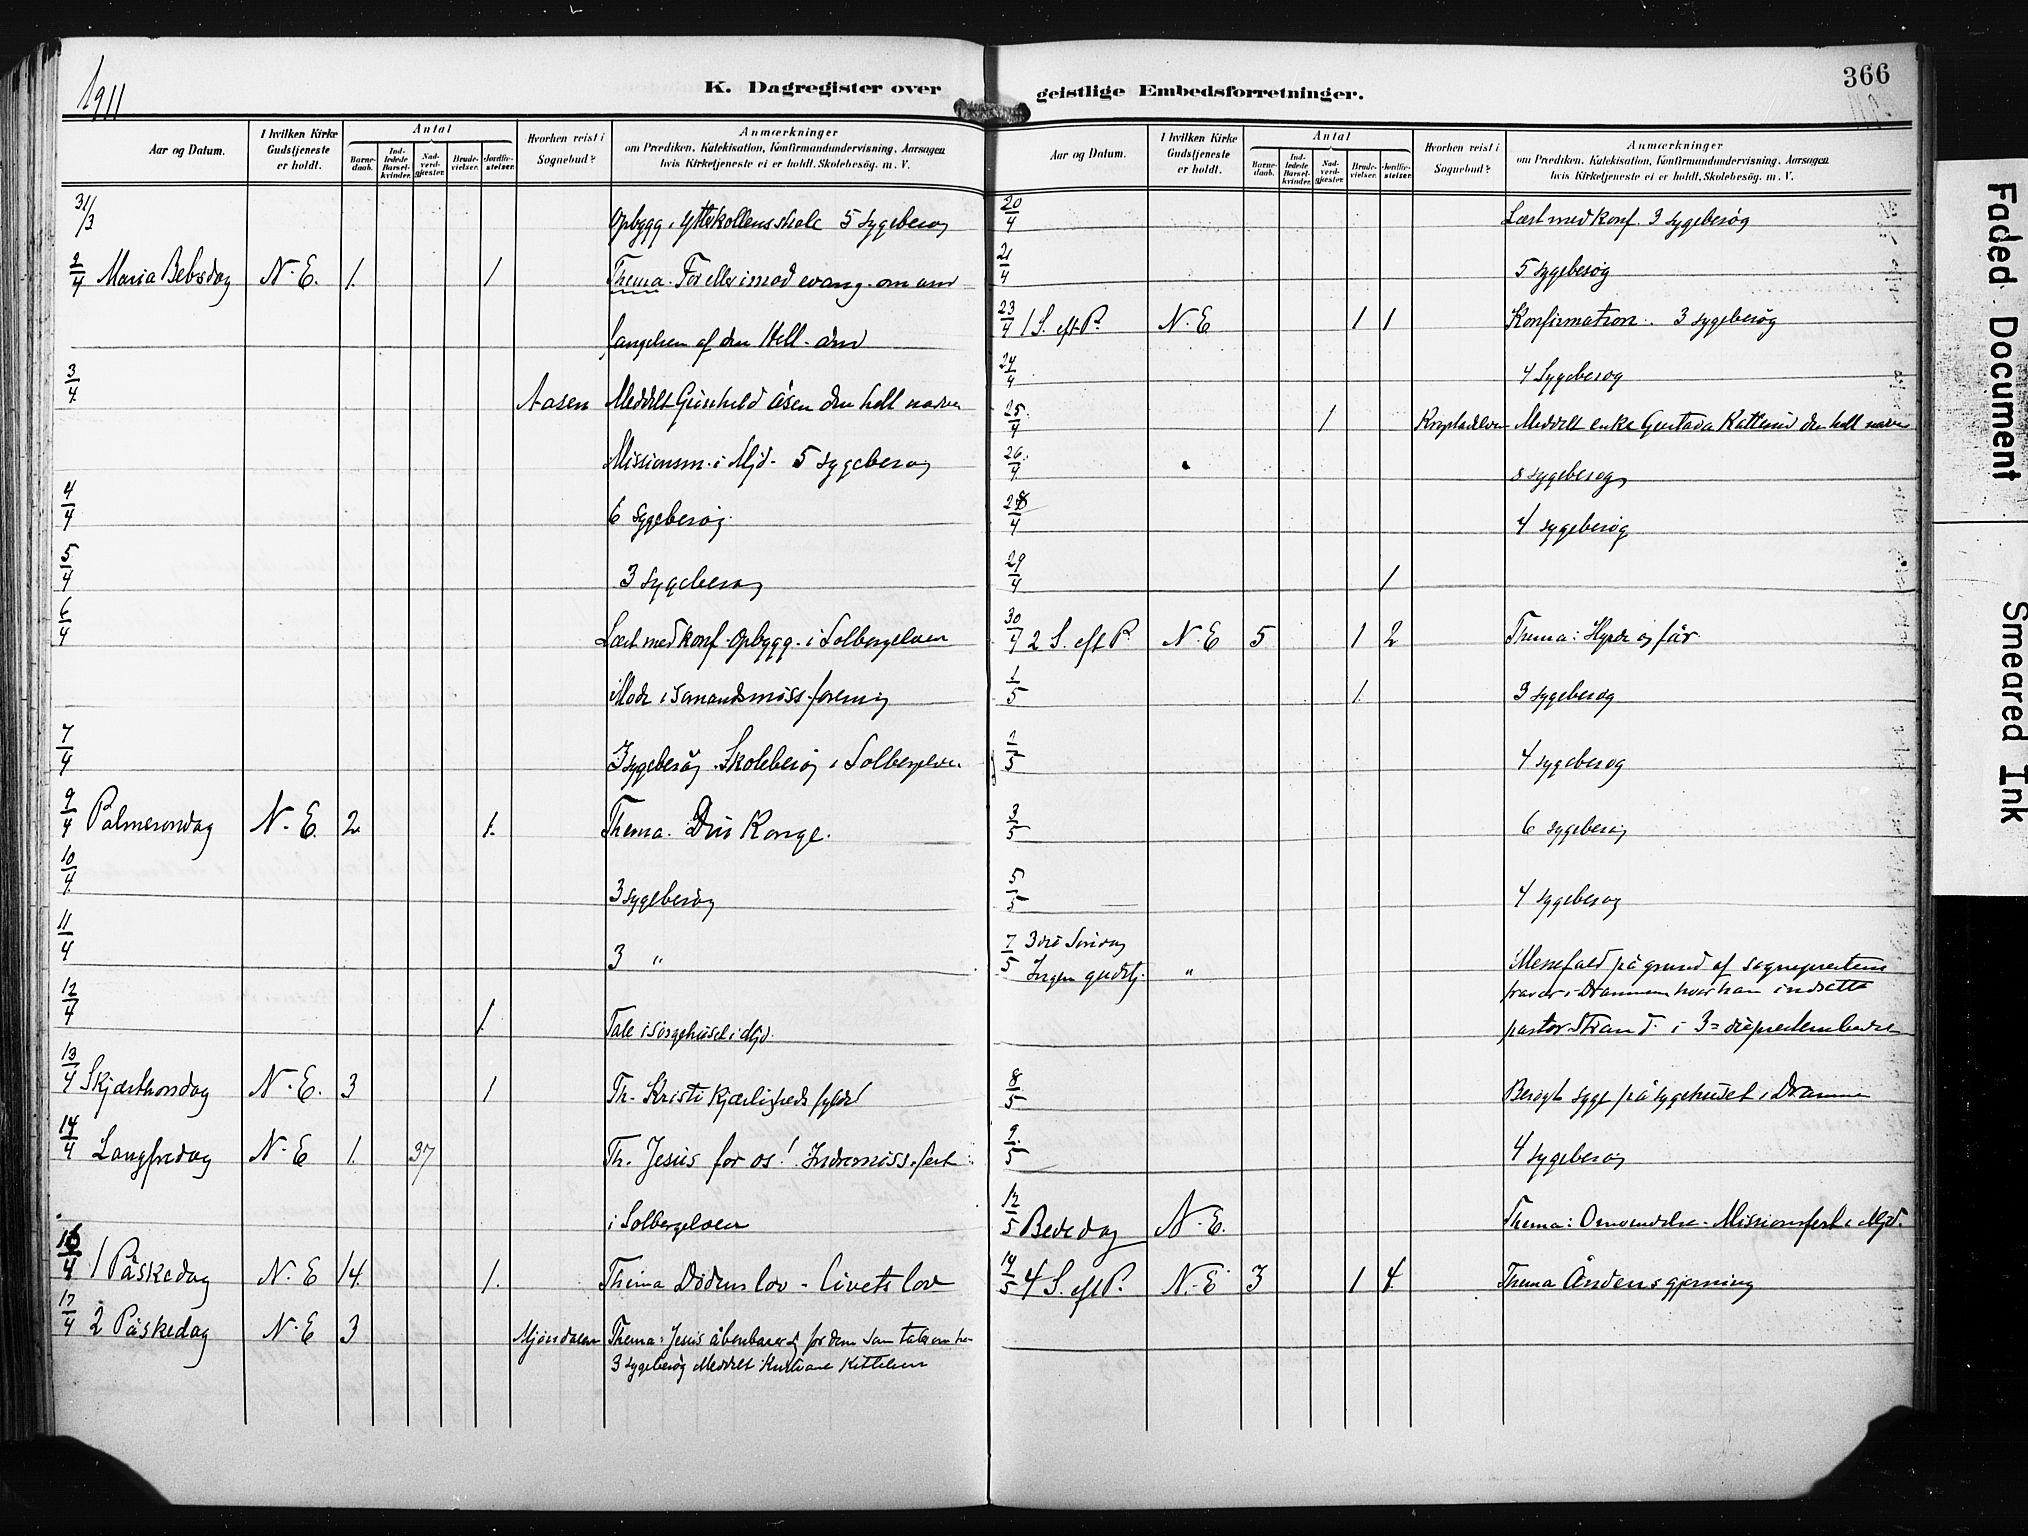 1911
K. Dagregister over
Aar og Datum.
I hvilken Kirke Gudstjeneste er holdt.
Antal
Barnedaab.
Indledede Barselkvinder.
Nadverdgjester.
Brudevielser.
Jordfæstelser.
Hvorhen reist i Sognebud?
Anmærkninger
om Prædiken, Katekisation, Konfirmandundervisning, Aarsagen
hvis Kirketjeneste ei er holdt, Skolebesøg, m. V.
31/3 Opbygg. i skole 5 sygebesøg
2/4 Maria Bebsdag N. E. 1. 1 Thema. For eller imod evang. om
fangelsen af den Hell. ånd
3/4 Aasen Meddelt Gunhild Åsen den hell nadver
Missionsm. i Mjd. 5 sygebesøg
4/4 6 sygebesøg.
5/4 3 sygebesøg
6/4 Læst med konf. Opbygg. i Solbergelven
Møde i sømandsmiss. forening
7/4 3 sygebesøg. Skolebesøg i Solbergelven
9/4 Palmesøndag N. E. 2. 1. Thema. Din Konge.
10/4 3 sygebesøg
11/4 3 "
12/4 1. Tale i sørgehuset i Mjd.
13/4 Skjærthorsdag N. E. 3 1 Th. Kristi Kjærligheds fylde!
14/4 Langfredag N. E 1. 37 Th. Jesus for os! Indremiss. fest
i Solbergelven
16/4 1 Påskedag N. E 14. 1. Thema Dødens lov - livets lov
17/4 2 Påskedag N. E 3 Mjøndalen Thema: Jesus åbenbarer sig for dem som taler om ham
3 sygebesøg Meddelt Kittelsen
geistlige Embedsforretninger.
366
Aar og Datum.
I hvilken Kirke Gudstjeneste er holdt.
Antal
Barnedaab.
Indledede Barselkvinder.
Nadverdgjester.
Brudevielser.
Jordfæstelser.
Hvorhen reist i Sognebud?
Anmærkninger
om Prædiken, Katekisation, Konfirmandundervisning, Aarsagen
hvis Kirketjeneste ei er holdt, Skolebesøg, m. V.
20/4 Læst med konf. 3 sygebesøg
21/4 5 sygebesøg
23/4 1 S. eft P. N. E 1 1 Konfirmation. 3 sygebesøg
24/4 4 sygebesøg
25/4 1 Meddelt enke Gustava den hell nadver
26/4 8 sygebesøg
28/4 4 sygebesøg
29/4 1
30/4 2 S. eft P. N. E 5 1 2 Thema: Hyrde og får
1/5 1. 3 sygebesøg
2/5 4 sygebesøg
3/5 6 sygebesøg
5/5 4 sygebesøg
7/5 3die Søndag
Ingen gudstj. " Messefald på grund af sogneprestens
fravær i Drammen hvor han indsatte
pastor Strand i 3die presteembede
8/5 Besøgt syge på sygehuset i Drammen
9/5 4 sygebesøg
12/5 Bededag N. E. Thema: Omvendelse. Missionsfest i Mjd.
14/5 4 S. eft P. N. E 3 1 4. Thema Åndens gjerning
Faded Document
Smeared Ink